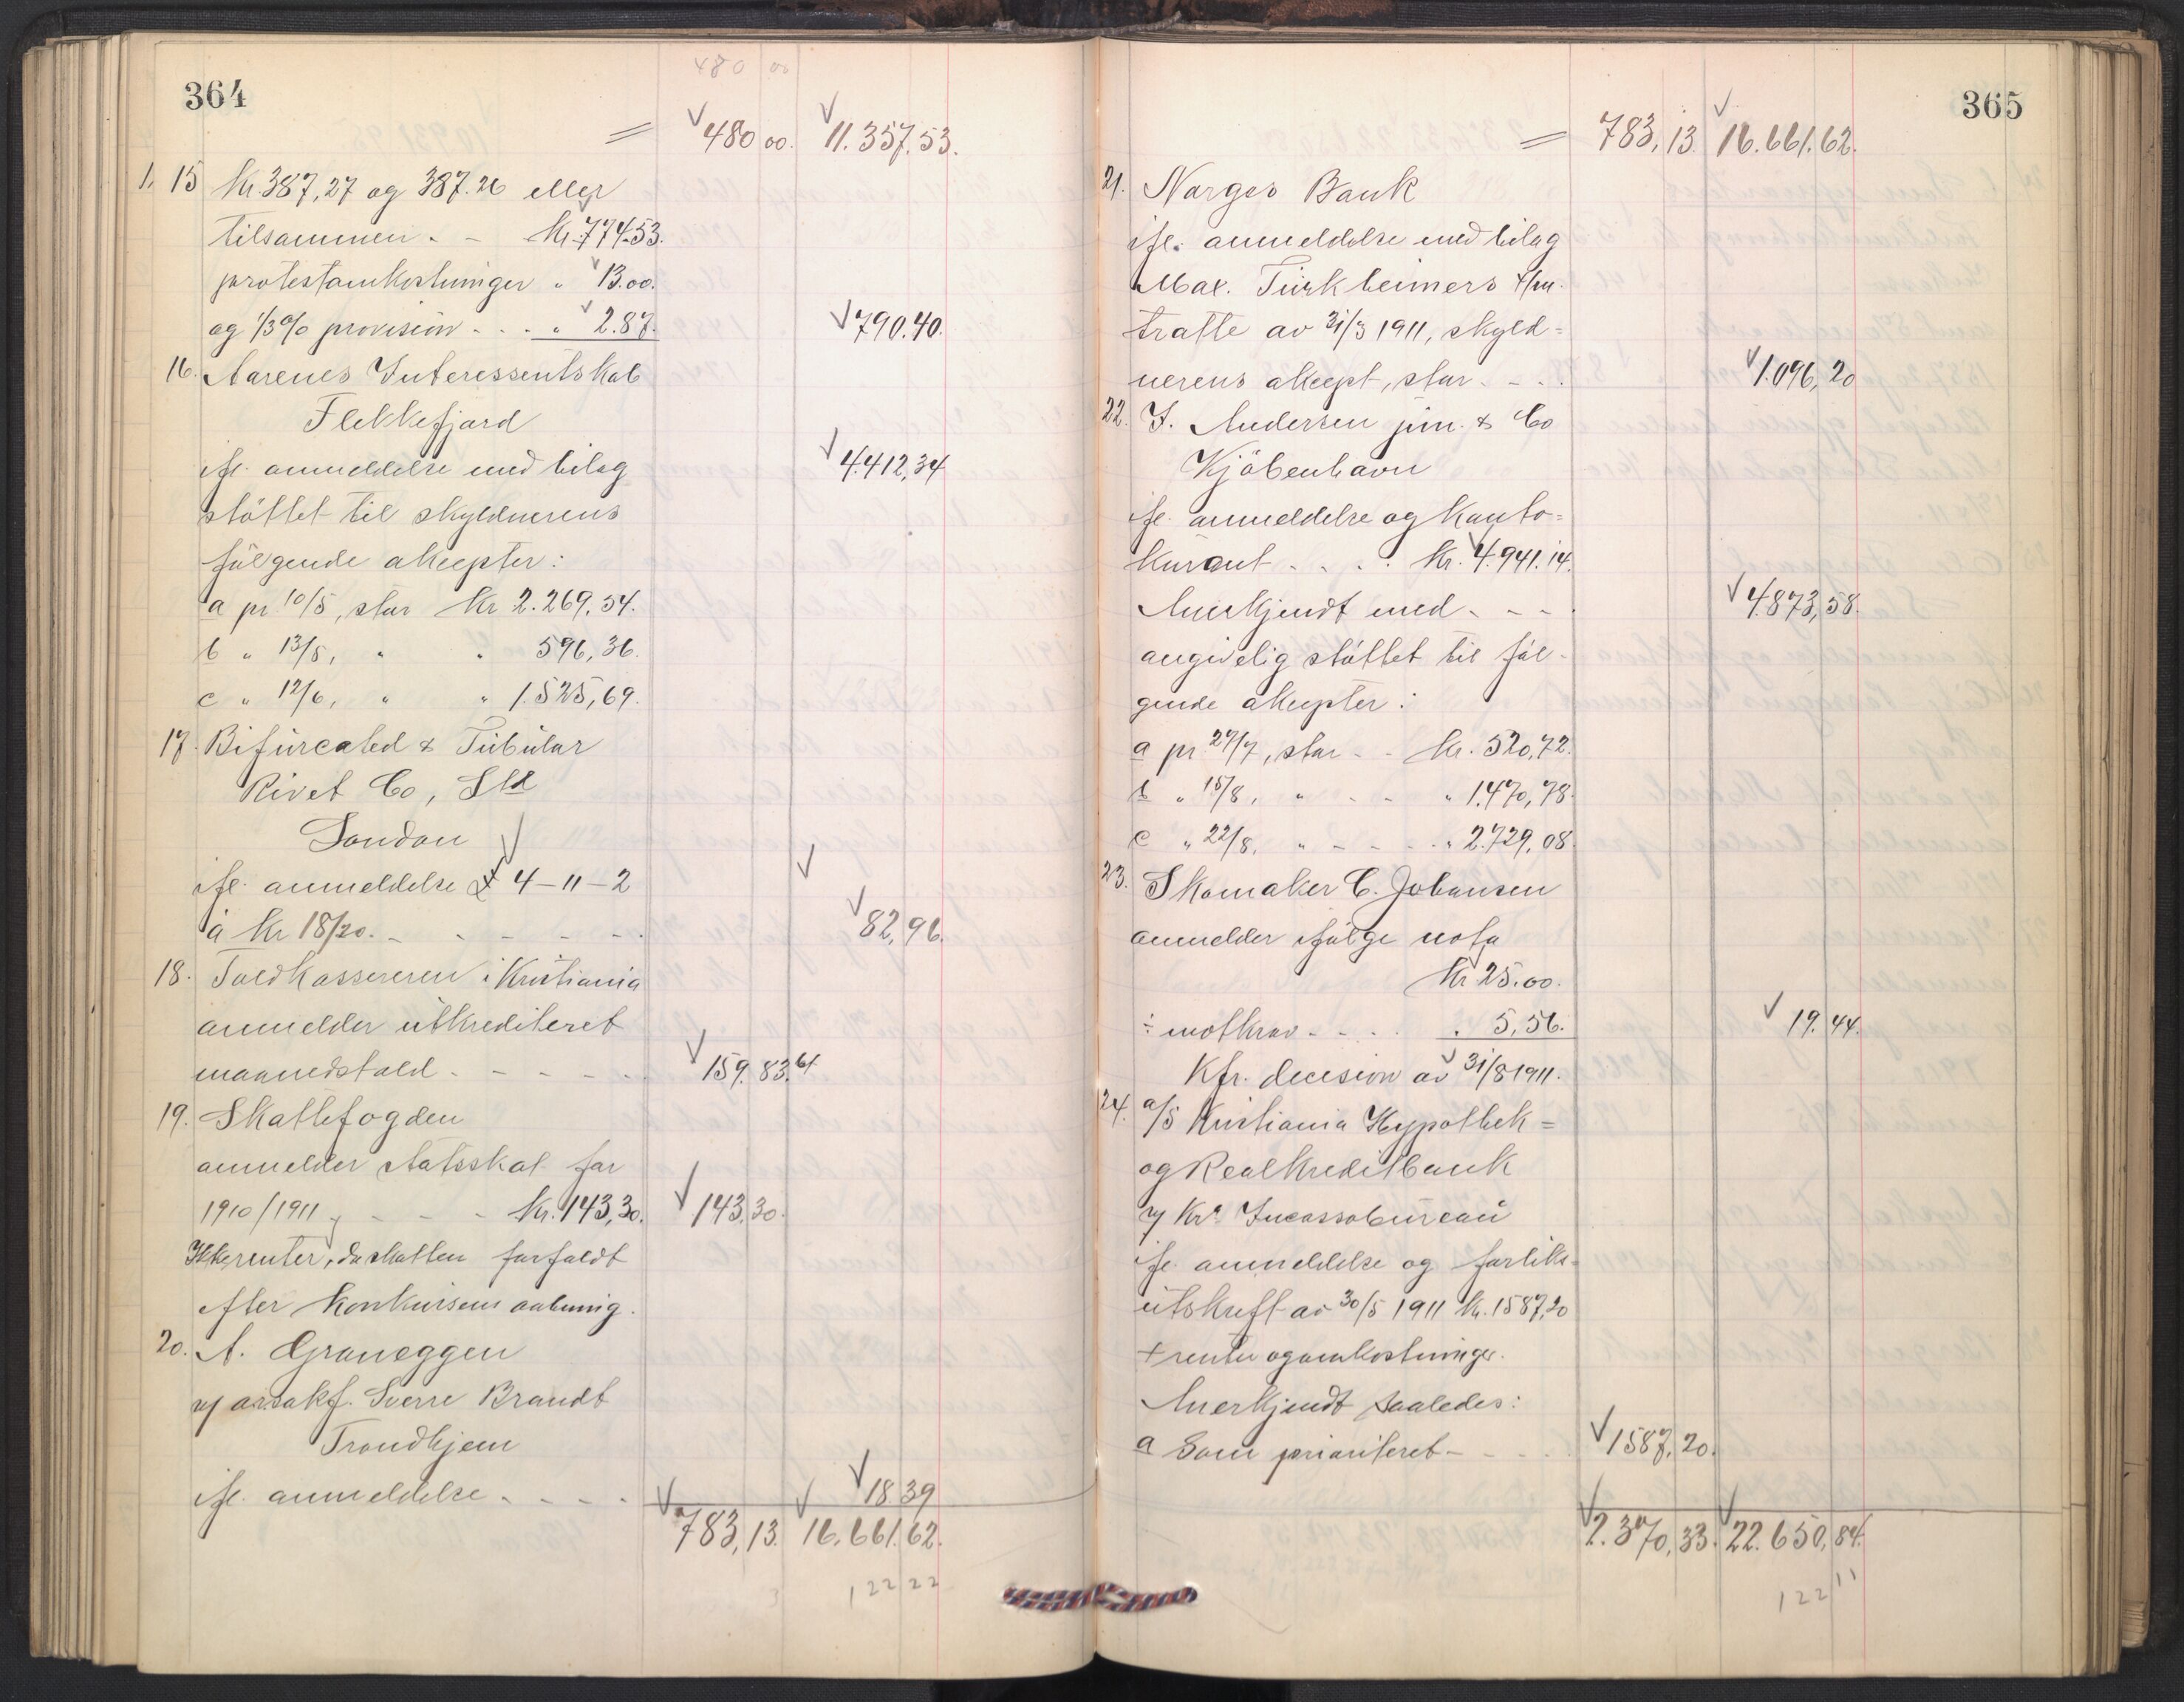 364
480 00
= 480 00. 11.357.53.
1, 15 Kr. 387,27 og 387.26 eller
tilsammen. - Kr. 774.53.
protestomkostninger " 13.00.
og 1/3 % provision - - . " 2.87. 790.40.
16. Aarenes Interessentskab
Flekkefjord
ifl. anmeldelse med bilag 4.412,34
støttet til skyldnerens
følgende aksepter:
a pr 10/5, stor Kr 2.269.54.
b " 13/5, " " 596,36.
c " 12/6, " " 1.525,69.
17. Bifurcated & Tubular
Rivet Co, Ltd
London
ifl. anmeldelse £ 4-11-2
à Kr 18/20. - - - - - . 82,96.
18. Toldkassereren i Kristiania
anmelder utkrediteret
maanedstold. - - - - . 159.83.
19. Skattefogden
anmelder statsskat for
1910/1911 - - - Kr. 143,30. 143,30.
Ikke renter, da skatten forfaldt
efter konkursens aabning.
20. A. Graneggen
v/ o.r.sakf. Sverre Brandt
Trondhjem
ifl. anmeldelse. - - - . 18 39
783,13. 16.661.62.
1 22 22
365
= 783,13. 16.661.62.
21. Norges Bank
ifl. anmeldelse med bilag
Max. Türkheimers 4/m.
tratte av 31/3 1911, skyld=
nerens aksept, stor. - - . 1.096,20
22. J. Andersen jun. & Co
Kjöbenhavn
ifl. anmeldelse og konto=
kurant - . . . Kr. 4.941.14.
Anerkjendt med - - - 4.873,58.
angivelig støttet til føl-
gende aksepter:
a pr. 27/7, stor - - Kr. 520,72.
b " 15/8, " - - " 1.470,78.
c " 22/8, " - - - " 2.729,08.
23. Skomaker C. Johansen
anmelder ifølge nota
Kr 25.00.
÷ motkrav - . . . " 5,56. 19.44.
Kfr. decision av 31/8 1911.
24. a/s Kristiania Hypothek=
og Realkreditbank
v/ Kra Incassobureau
ifl. anmeldelse og forliks=
utskrift av 30/5 1911 Kr. 1587,20
+ renter og omkostninger.
Anerkjendt saaledes:
a Som prioriteret - - - . 1587,20.
2.370,33. 22.650,84.
1 22 11